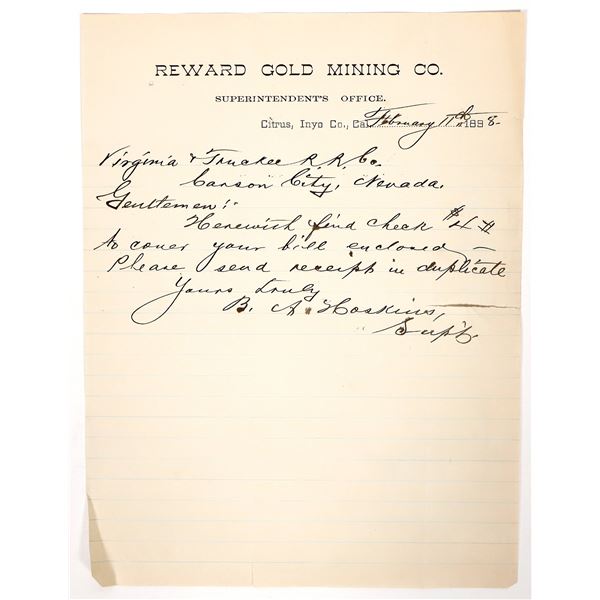 REWARD GOLD MINING CO.
SUPERINTENDENT'S OFFICE.
Citrus, Inyo Co., Cal. February 11th 1898
Virginia & Truckee R.R. Co.
Carson City, Nevada.
Gentlemen:
Herewith find check $4
to cover your bill enclosed –
Please send receipt in duplicate
Yours truly
B. A. Hoskins,
Supt.